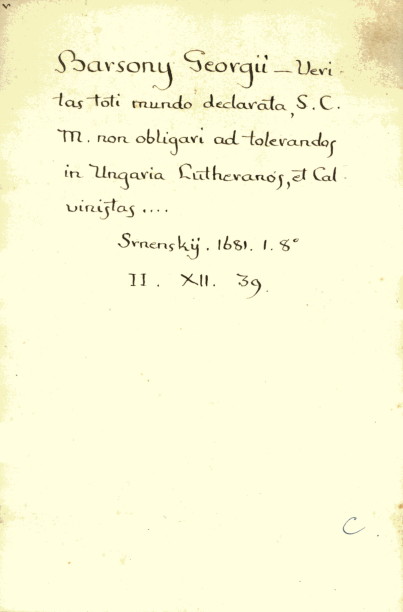 Barsony Georgii — Veri-
tas toti mundo declarata, S. C.
M. non obligari ad tolerandos
in Ungaria Lutheranos, et Cal-
vinistas ....
Srnenskij. 1681. 1. 8°
II. XII. 39.
C.